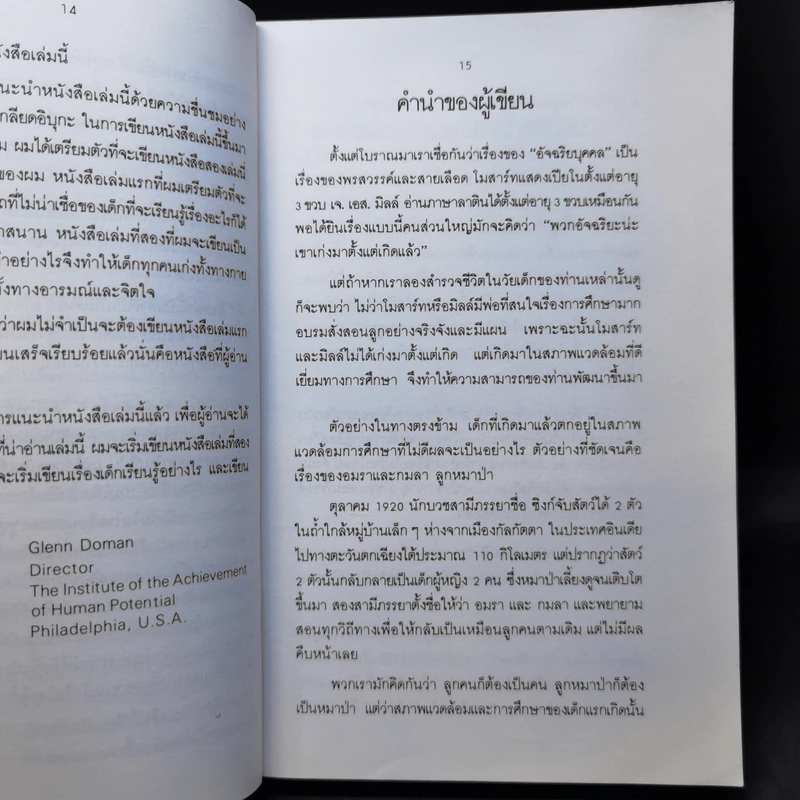 14
นังสือเล่มนี้
นะนำหนังสือเล่มนี้ด้วยความชื่นชมอย่าง
เกลียดอิบุกะ ในการเขียนหนังสือเล่มนี้ขึ้นมา
ม ผมได้เตรียมตัวที่จะเขียนหนังสือสองเล่มนี้
ของผม หนังสือเล่มแรกที่ผมเตรียมตัวที่จะ
ถที่ไม่น่าเชื่อของเด็กที่จะเรียนรู้เรื่องอะไรก็ได้
าสนาน หนังสือเล่มที่สองที่ผมจะเขียนเป็น
ำอย่างไรจึงทำให้เด็กทุกคนเก่งทั้งทางกาย
ทั้งทางอารมณ์และจิตใจ
ว่าผมไม่จำเป็นจะต้องเขียนหนังสือเล่มแรก
ยนเสร็จเรียบร้อยแล้วนั่นคือหนังสือที่ผู้อ่าน
ารแนะนำหนังสือเล่มนี้แล้ว เพื่อผู้อ่านจะได้
ที่น่าอ่านเล่มนี้ ผมจะเริ่มเขียนหนังสือเล่มที่สอง
จะเริ่มเขียนเรื่องเด็กเรียนรู้อย่างไร และเขียน
Glenn Doman
Director
The Institute of the Achievement
of Human Potential
Philadelphia, U.S.A.
15
คำนำของผู้เขียน
ตั้งแต่โบราณมาเราเชื่อกันว่าเรื่องของ "อัจฉริยบุคคล" เป็น
เรื่องของพรสวรรค์และสายเลือด โมสาร์ทแสดงเปียโนตั้งแต่อายุ
3 ขวบ เจ. เอส. มิลล์ อ่านภาษาลาตินได้ตั้งแต่อายุ 3 ขวบเหมือนกัน
พอได้ยินเรื่องแบบนี้คนส่วนใหญ่มักจะคิดว่า "พวกอัจฉริยะน่ะ
เขาเก่งมาตั้งแต่เกิดแล้ว"
แต่ถ้าหากเราลองสำรวจชีวิตในวัยเด็กของท่านเหล่านั้นดู
ก็จะพบว่า ไม่ว่าโมสาร์ทหรือมิลล์มีพ่อที่สนใจเรื่องการศึกษามาก
อบรมสั่งสอนลูกอย่างจริงจังและมีแผน เพราะฉะนั้นโมสาร์ท
และมิลล์ไม่ได้เก่งมาตั้งแต่เกิด แต่เกิดมาในสภาพแวดล้อมที่ดี
เยี่ยมทางการศึกษา จึงทำให้ความสามารถของท่านพัฒนาขึ้นมา
ตัวอย่างในทางตรงข้าม เด็กที่เกิดมาแล้วตกอยู่ในสภาพ
แวดล้อมการศึกษาที่ไม่ดีผลจะเป็นอย่างไร ตัวอย่างที่ชัดเจนคือ
เรื่องของอมราและกมลา ลูกหมาป่า
ตุลาคม 1920 นักบวชสามีภรรยาชื่อ ซิงก์จับสัตว์ได้ 2 ตัว
ในถ้ำใกล้หมู่บ้านเล็กๆ ห่างจากเมืองกัลกัตตา ในประเทศอินเดีย
ไปทางตะวันตกเฉียงใต้ประมาณ 110 กิโลเมตร แต่ปรากฏว่าสัตว์
2 ตัวนั้นกลับกลายเป็นเด็กผู้หญิง 2 คน ซึ่งหมาป่าเลี้ยงดูจนเติบโต
ขึ้นมา สองสามีภรรยาตั้งชื่อให้ว่า อมรา และ กมลา และพยายาม
สอนทุกวิถีทางเพื่อให้กลับเป็นเหมือนลูกคนตามเดิม แต่ไม่มีผล
คืบหน้าเลย
พวกเรามักคิดกันว่า ลูกคนก็ต้องเป็นคน ลูกหมาป่าก็ต้อง
เป็นหมาป่า แต่ว่าสภาพแวดล้อมและการศึกษาของเด็กแรกเกิดนั้น